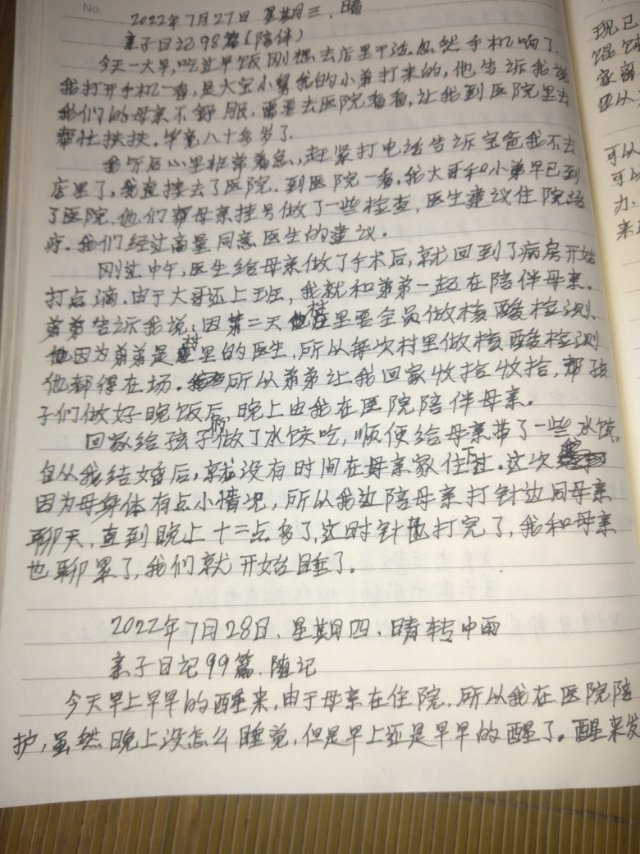 No.
2022年7月27日 星期三.晴
亲子日记98篇(陪伴)
今天一大早,吃过早饭刚想去店里干活.忽然手机响了.
我打开手机一看,是大宝小舅我的小弟打来的,他告诉我说
我们的母亲不舒服,需要去医院看看,让我到医院里去
帮忙扶扶,毕竟八十多岁了.
我听后心里非常着急,赶紧打电话告诉宝爸我不去
店里了,我直接去了医院.到医院一看,我大哥和小弟早已到
了医院.他们帮母亲挂号做了一些检查,医生建议住院治
疗.我们经过商量同意医生的建议.
刚过中午,医生给母亲做了手术后,就回到了病房开始
打点滴.由于大哥还上班,我就和弟弟一起在陪伴母亲.
弟弟告诉我说:因第二天村里要全员做核酸检测.
因为弟弟是村里的医生,所以每次村里做核酸检测
他都得在场.所以弟弟让我回家收拾收拾,帮孩
子们做好晚饭后,晚上由我在医院陪伴母亲.
回家给孩子们做了水饺吃,顺便给母亲带了一些水饺,
自从我结婚后,就没有时间在母亲家住下过.这次
因为母身体有点小情况,所以我边陪母亲打针边同母亲
聊天,直到晚上十二点多了,这时针也打完了,我和母亲
也聊累了,我们就开始睡了.
2022年7月28日.星期四.晴转中雨
亲子日记99篇.随记
今天早上早早的醒来,由于母亲在住院,所以我在医院陪
护,虽然晚上没怎么睡觉,但是早上还是早早的醒了.醒来发
现已
可从
可
办.
来